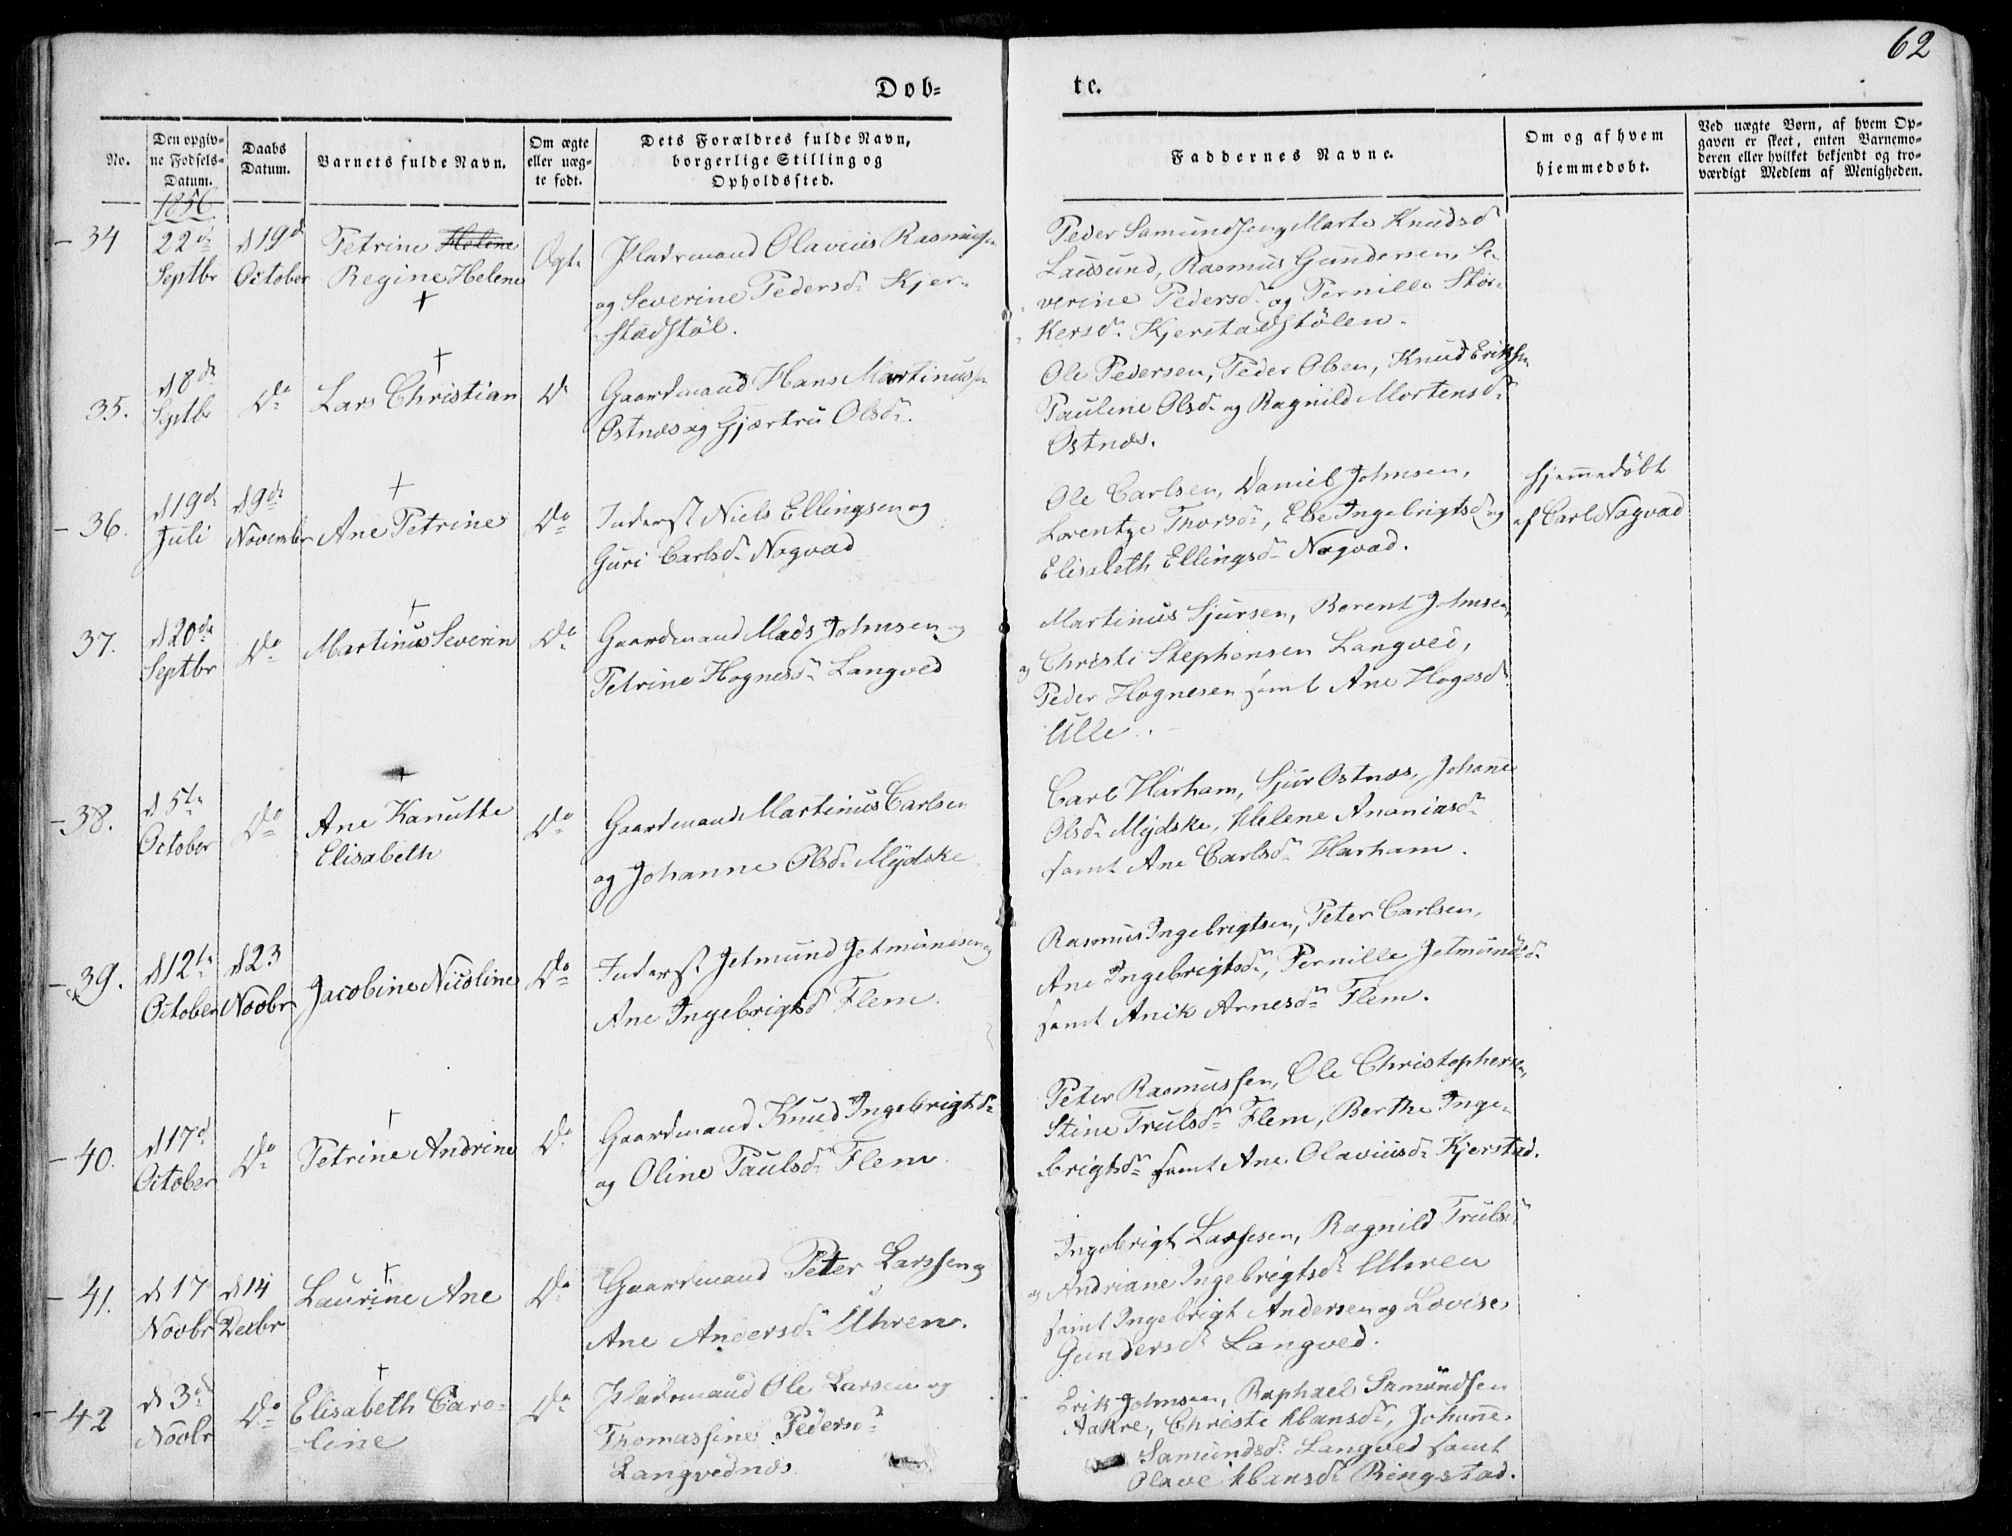 62
Døb=
te.
No.
Den opgiv-
ne Fødsels-
Datum.
Daabs
Datum.
Varnets fulde Navn.
Om ægte
eller uæg-
te født.
Dets Forældres fulde Navn,
borgerlige Stilling og
Opholdssted.
Faddernes Navne.
Om og af hvem
hjemmedøbt.
Ved uægte Børn, af hvem Op-
gaven er skeet, enten Barnemo-
deren eller hvilket bekjendt og tro-
værdigt Medlem af Menigheden.
1856
34
22d
Septbr
d 19d
October
Petrine Helene
Regine Helene
+
Ægte
Pladsmand Olavius Rasmussen
og Severine Pedersd. Kjer-
stadstøl.
Peder Samundsen, Marte Knudsd
Lausund, Rasmus Gundersen, Se-
verine Pedersd. og Pernille Stor-
kersd. Kjerstadstølen.
35.
d 8de
Septbr
Do
+
Lars Christian
Do
Gaardmand Hans Martinussen
Ostnæs og Gjærtru Olsd.
Ole Pedersen, Peder Olsen, Knud Eriksen
Pauline Olsd. og Ragnild Mortensd.
Ostnæs.
36.
d 19d
Juli
d 9de
November
+
Ane Petrine
Do
Inderst Niels Ellingsen og
Guri Carlsd. Nogvad
Ole Carlsen, Daniel Johnsen,
Lorentze Thorsd., Else Ingebrigtsd. og
Elisabeth Ellingsd. Nogvad.
hjemmedøbt
af Carl Nogvad
37.
d 20de
Septbr
Do
+
Martinus Severin
Do
Gaardmand Mads Johnsen og
Petrine Hognesd. Langved
Martinus Sjursen, Berent Johnsen,
og Christi Stephensen Langved,
Peder Hognesen samt Ane Hogesd.
Ulle.
38.
d 5te
October
Do
+
Ane Kanutte
Elisabeth
Do
Gaardmand Martinus Carlsen
og Johanne Olsd. Mydske
Carl Harham, Sjur Ostnæs, Johanne
Olsd. Mydske, Helene Ananiasd.
samt Ane Carlsd. Harham.
39.
d 12te
October
d 23
Novbr
Jacobine Nicoline
Do
Inderst Jetmund Jetmundsen og
Ane Ingebrigtsd. Flem.
Rasmus Ingebrigtsen, Peter Carlsen,
Ane Ingebrigtsd., Pernille Jetmundsd.
samt Anik Arnesd. Flem.
40.
d 17d
October
Do
+
Petrine Andrine
Do
Gaardmand Knud Ingebrigtsd.
og Oline Paulsd. Flem.
Peter Rasmussen, Ole Christophersen,
Stine Trulsd. Flem, Berthe Inge-
brigtsd. samt Ane Olaviusd. Kjerstad.
41.
d 17
Novbr
d 14
Decbr
+
Laurine Ane
Do
Gaardmand Peter Larssen og
Ane Andersd. Uhren.
Ingebrigt Larssen, Ragnild Trulsd.
og Andriane Ingebrigtsd. Uhren
samt Ingebrigt Andersen og Lovise
Gundersd. Langved.
42
d 3d
Novbr
Do
+
Elisabeth Caro-
line
Do
Pladsmand Ole Larsen og
Thomassine Pedersd.
Langvednæs
Erik Johnsen, Raphael Samundsen
Aakre, Christi Hansd., Johanne
Samundsd. Langved samt
Olave Hansd. Ringstad.